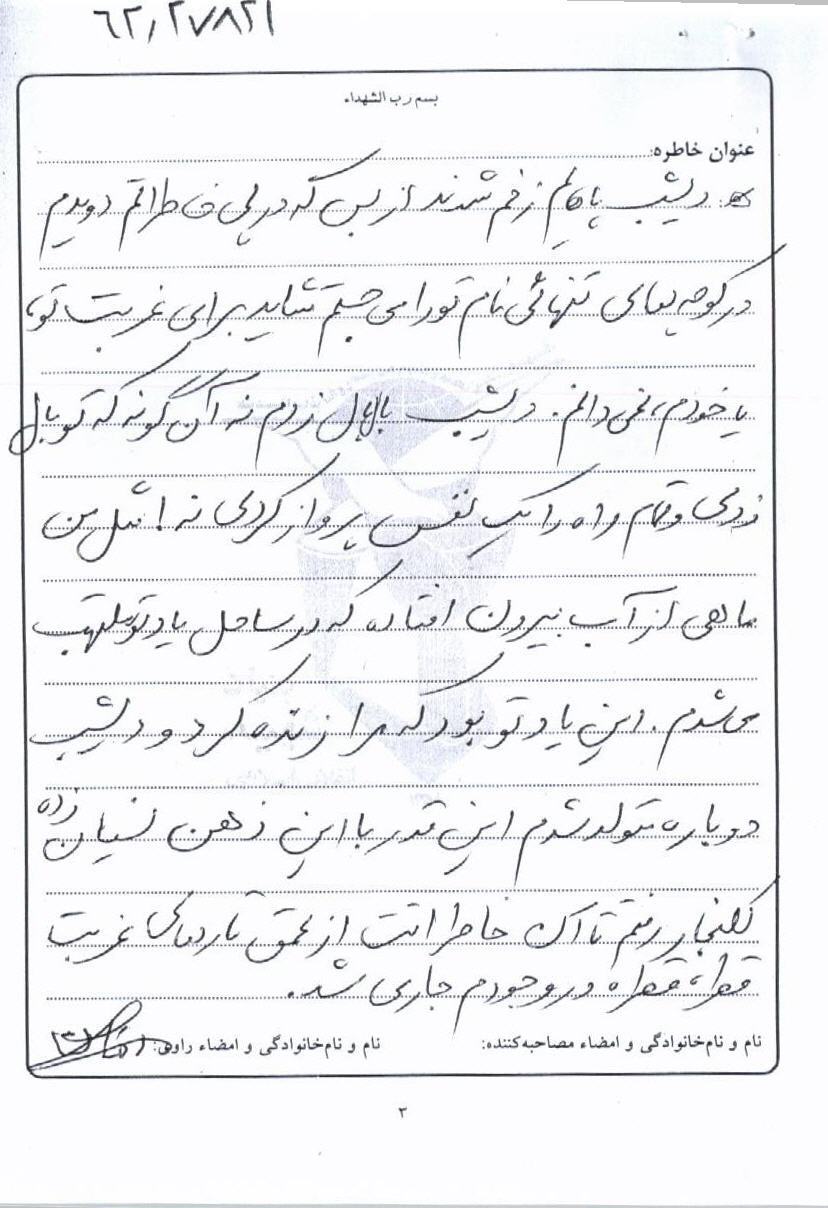 ۶۲,۲۷۸۲۱
بسم رب الشهداء
عنوان خاطره:
دیشب پاهایم زخم شدند از بس که در پی خاطراتم دویدم
در کوچه های تنهائی نام تو را می جستم شاید برای غربت تو،
یا خودم، نمی دانم. دیشب بال بال زدم نه آن گونه که تو بال
زدی و تمام راه را یک نفس پرواز کردی نه! مثل من
ماهی از آب بیرون افتاده که در ساحل یاد تو ملتهب
می شدم. این یاد تو بود که مرا زنده کرد و دیشب
دوباره متولد شدم این قدر با این ذهن نسیان زده
کلنجار رفتم تا آن خاطراتت از عمق تاریکی غربت
قطره قطره در وجودم جاری شد.
نام و نام خانوادگی و امضاء مصاحبه کننده:
نام و نام خانوادگی و امضاء راوی:
۳